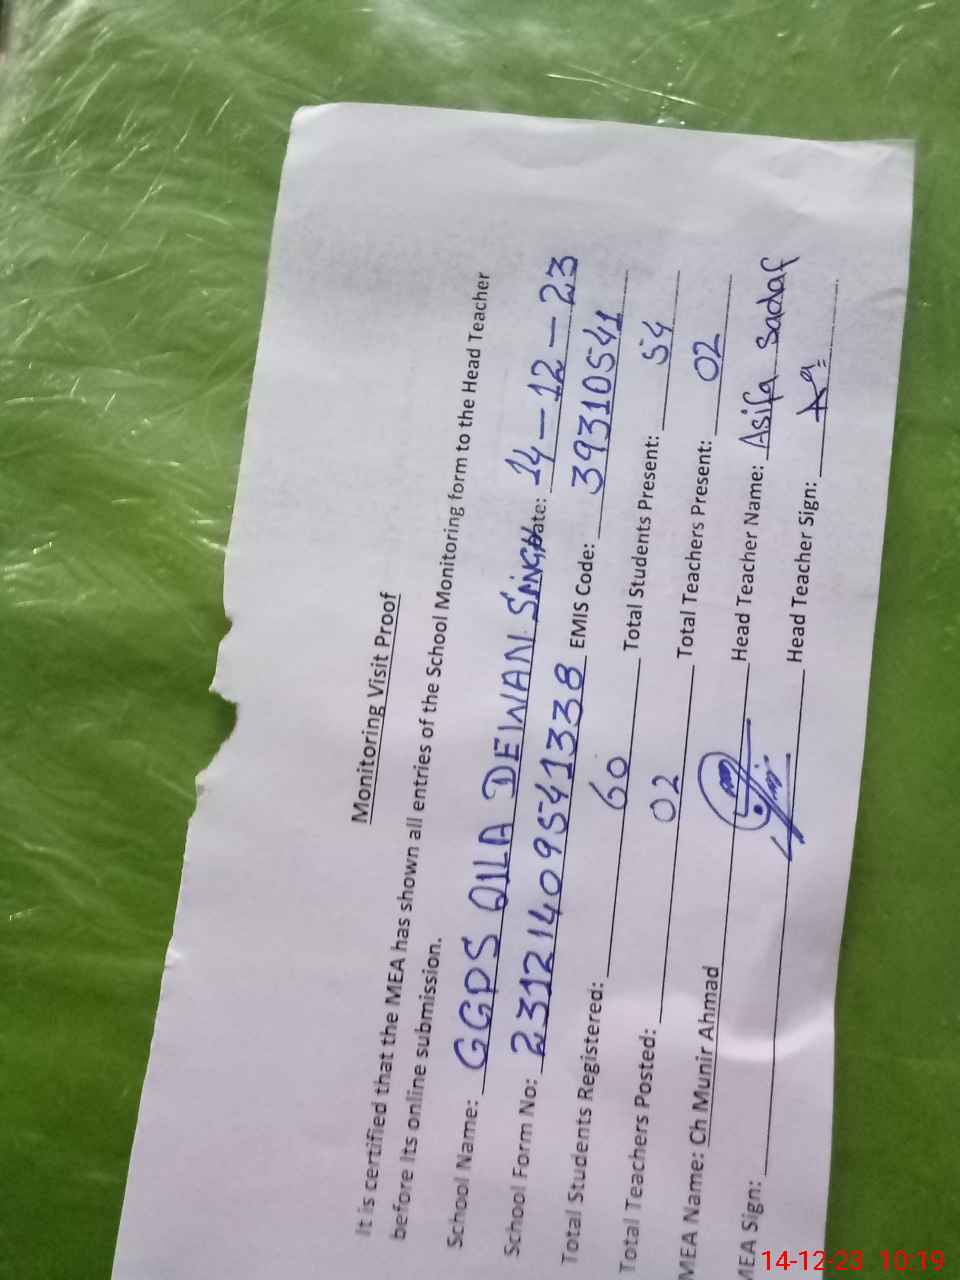 Monitoring Visit Proof
It is certified that the MEA has shown all entries of the School Monitoring form to the Head Teacher
before Its online submission.
School Name: GGPS QILA DEWAN SINGH Date: 14-12-23
School Form No: 23121409541338 EMIS Code: 39310541
Total Students Registered: 60 Total Students Present: 54
Total Teachers Posted: 02 Total Teachers Present: 02
MEA Name: Ch Munir Ahmad Head Teacher Name: Asifa Sadaf
MEA Sign: Head Teacher Sign:
14-12-23 10:19